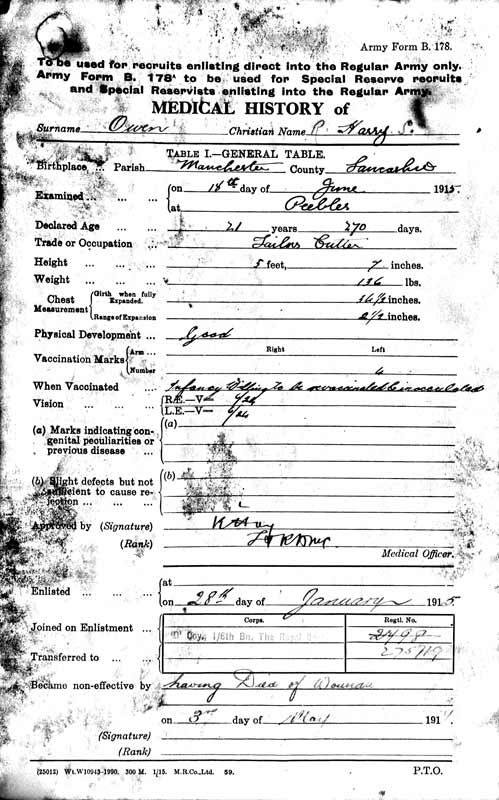 Army Form B. 178.
To be used for recruits enlisting direct into the Regular Army only.
Army Form B. 178A to be used for Special Reserve recruits
and Special Reservists enlisting into the Regular Army.
MEDICAL HISTORY of
Surname Owen Christian Name P. Harry S.
TABLE I.—GENERAL TABLE.
Birthplace ... Parish Manchester County Lancashire
Examined ... { on 18th day of June 1915.
at Peebles
Declared Age ... 21 years 270 days.
Trade or Occupation ... Tailors Cutter
Height ... 5 feet, 7 inches.
Weight ... 136 lbs.
Chest Measurement { Girth when fully Expanded. 36 1/2 inches.
Range of Expansion 2 1/2 inches.
Physical Development ... Good
Right Left
Vaccination Marks { Arm ...
Number
When Vaccinated ... Infancy Willing to be revaccinated & inoculated
Vision ... { R.E.—V— 6/24
L.E.—V— 6/24
(a) Marks indicating congenital peculiarities or previous disease ... (a)
(b) Slight defects but not sufficient to cause rejection ... (b)
Approved by (Signature)
(Rank)
Medical Officer.
Enlisted ... { at
on 28th day of January 1915.
Corps. Regtl. No.
Joined on Enlistment ... Coy., 1/6th Bn. The Royal 2498
Transferred to ... 275119
Became non-effective by having Died of Wounds
on 3rd day of May 1917.
(Signature)
(Rank)
(25012) Wt.W10943—1990. 300 M. 1/15. M.R.Co.,Ltd. 59. P.T.O.